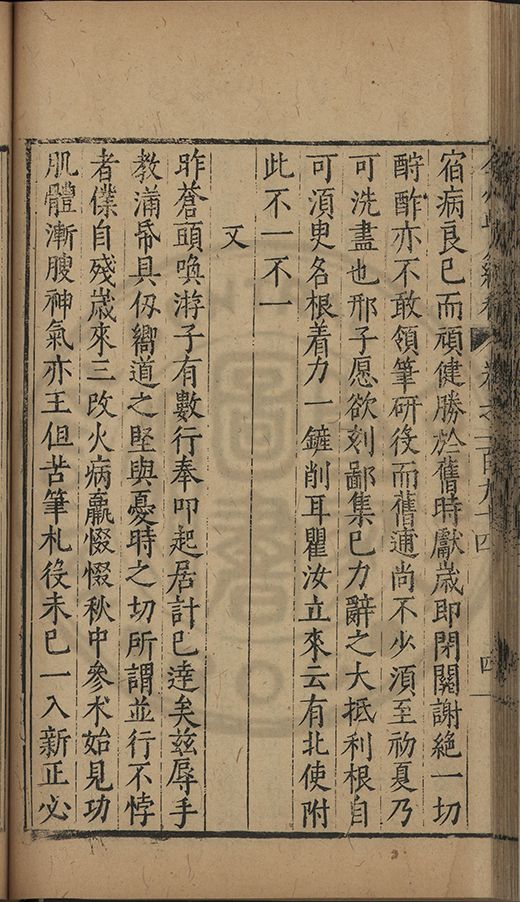 卷之二百九十四 四
宿病良已而頑健勝於舊時獻歲即閉關謝絕一切
酧酢亦不敢領筆研役而舊逋尚不少須至初夏乃
可洗盡也邢子愿欲刻鄙集已力辭之大抵利根自
可湏臾名根着力一鏟削耳瞿汝立來云有北使附
此不一不一
又
昨蒼頭喚游子有數行奉叩起居計已達矣茲辱手
教滿帋具仭嚮道之堅與憂時之切所謂並行不悖
者僕自殘歲來三改火病羸惙惙秋中參术始見功
肌體漸腴神氣亦王但苦筆札役未已一入新正必